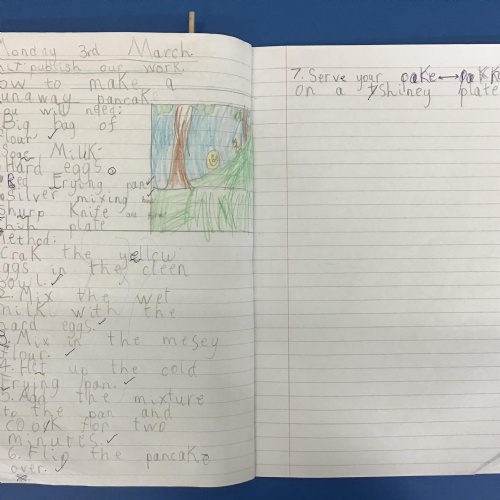 Monday 3rd March
publish our work.
How to make a
runaway pancake
You will need:
Big bag of
flour
Milk
Hard eggs
Red Frying pan
Silver mixing
Shurp Knife
plate
Method:
Crak the yellow
eggs in the cleen
bowl.
2. Mix the wet
milk with the
hard eggs.
Mix in the mesey
flour.
4. Het up the cold
frying pan.
5. Add the mixture
to the pan and
cook for two
minutes.
6. Flip the pancake
over.
7. Serve your
on a shiney plate